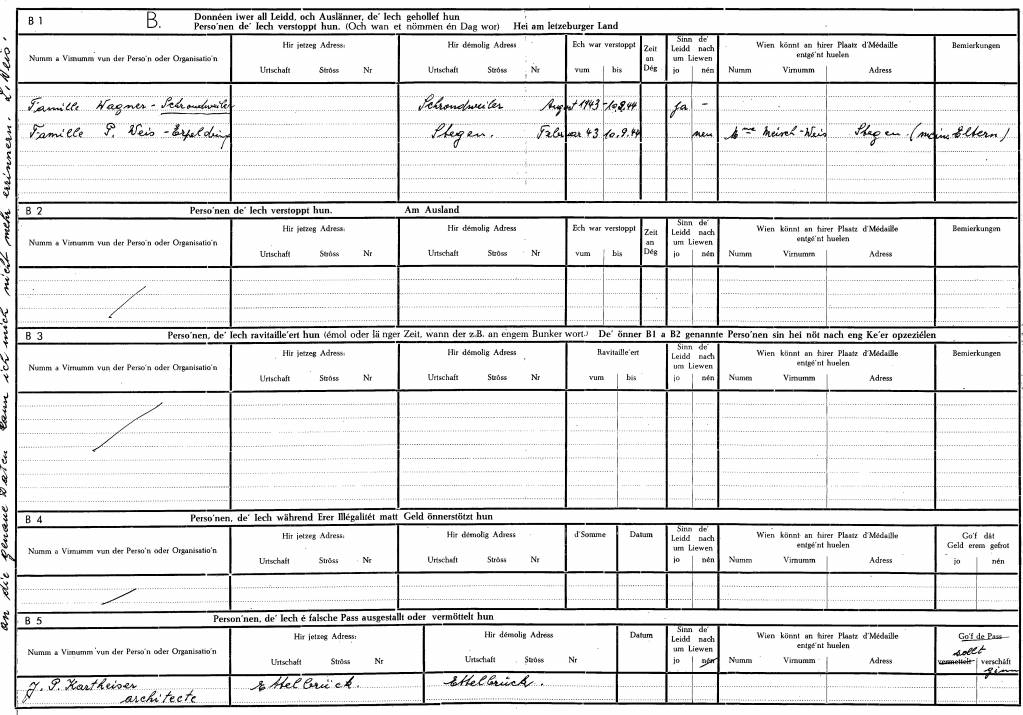 B 1 B. Donnéen iwer all Leidd, och Auslänner, de' Iech gehollef hun
Perso'nen de' Iech verstoppt hun. (Och wan et nömmen én Dag wor) Hei am letzeburger Land
Numm a Virnumm vun der Perso'n oder Organisatio'n
Hir jetzeg Adress:
Urtschaft Ströss Nr
Hir démolig Adress
Urtschaft Ströss Nr
Ech war verstoppt
vum bis
Zeit
an
Dég
Sinn de'
Leidd nach
um Liewen
jo nén
Wien könnt an hirer Plaatz d'Médaille
entgé'nt huelen
Numm Virnumm Adress
Bemierkungen
Famille Wagner - Schrondweiler Schrondweiler August 1943 - 10.9.44 ja -
Famille P. Weis - Erpelding Stegen. Februar 43 10.9.44 nen Mme Meisch-Weis Stegen. (meine Eltern)
B 2 Perso'nen de' Iech verstoppt hun. Am Ausland
Numm a Virnumm vun der Perso'n oder Organisatio'n
Hir jetzeg Adress:
Urtschaft Ströss Nr
Hir démolig Adress
Urtschaft Ströss Nr
Ech war verstoppt
vum bis
Zeit
an
Dég
Sinn de'
Leidd nach
um Liewen
jo nén
Wien könnt an hirer Plaatz d'Médaille
entgé'nt huelen
Numm Virnumm Adress
Bemierkungen
B 3 Perso'nen, de' Iech ravitaille'ert hun (émol oder lä nger Zeit, wann der z.B. an engem Bunker wort.) De' önner B1 a B2 genannte Perso'nen sin hei nöt nach eng Ke'er opzeziélen
Numm a Virnumm vun der Perso'n oder Organisatio'n
Hir jetzeg Adress:
Urtschaft Ströss Nr
Hir démolig Adress
Urtschaft Ströss Nr
Ravitaille'ert
vum bis
Sinn de'
Leidd nach
um Liewen
jo nén
Wien könnt an hirer Plaatz d'Médaille
entgé'nt huelen
Numm Virnumm Adress
Bemierkungen
B 4 Perso'nen, de' Iech während Erer Illégalitét matt Geld önnerstötzt hun
Numm a Virnumm vun der Perso'n oder Organisatio'n
Hir jetzeg Adress:
Urtschaft Ströss Nr
Hir démolig Adress
Urtschaft Ströss Nr
d'Somme
Datum
Sinn de'
Leidd nach
um Liewen
jo nén
Wien könnt an hirer Plaatz d'Médaille
entgé'nt huelen
Numm Virnumm Adress
Go'f dât
Geld erem gefrot
jo nén
B 5 Person'nen, de' Iech é falsche Pass ausgestallt oder vermöttelt hun
Numm a Virnumm vun der Perso'n oder Organisatio'n
Hir jetzeg Adress:
Urtschaft Ströss Nr
Hir démolig Adress
Urtschaft Ströss Nr
Datum
Sinn de'
Leidd nach
um Liewen
jo nén
Wien könnt an hirer Plaatz d'Médaille
entgé'nt huelen
Numm Virnumm Adress
Go'f de Pass
sollt
vermettelt verschâft
J. P. Kartheiser Ettelbrück. Ettelbrück.
architecte
an die genaue Daten kann ich mich nicht mehr errinnern. L. Weis.